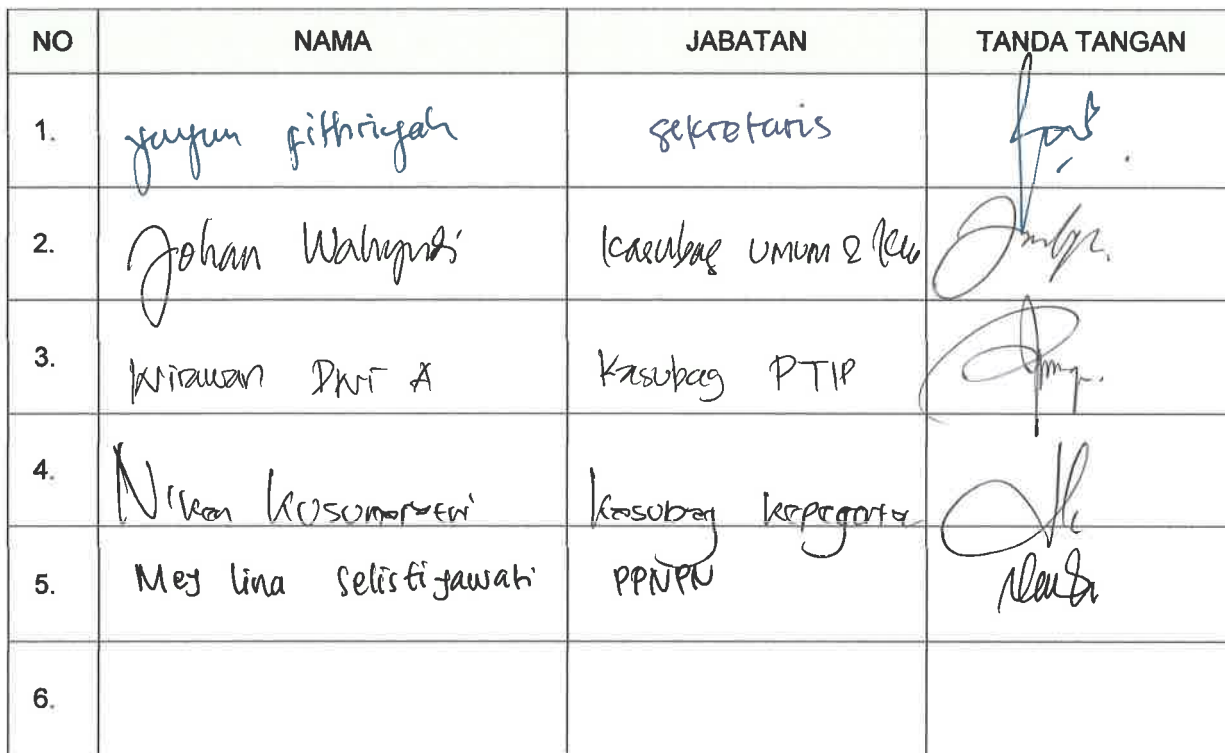 NO NAMA JABATAN TANDA TANGAN
1. yuyun fithriyah sekretaris
2. Johan Wahyudi Kasubag UMUM &
3. Wirawan Dwi A Kasubag PTIP
4. Niken Kusumawati Kasubag
5. Mey lina selistijawati PPNPN
6.